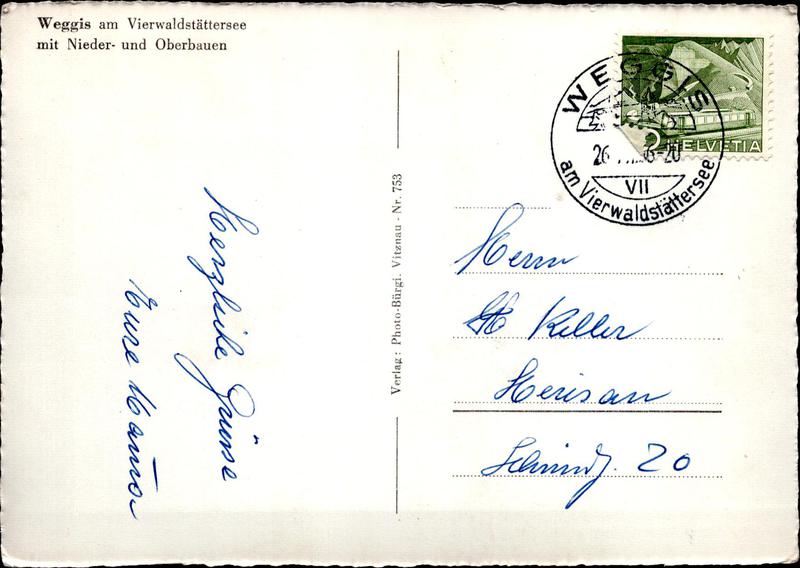 Weggis am Vierwaldstättersee
mit Nieder- und Oberbauen
WEGGIS
26
-20
VII
am Vierwaldstättersee
2 HELVETIA
Verlag: Photo-Bürgi. Vitznau - Nr. 753
Herzliche Grüsse
Eure
Herrn
Keller
Herisau
20